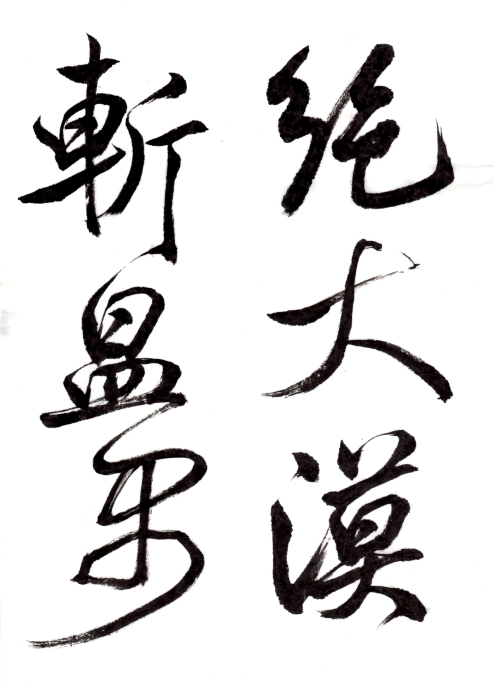 絶大漠
斬昷禺